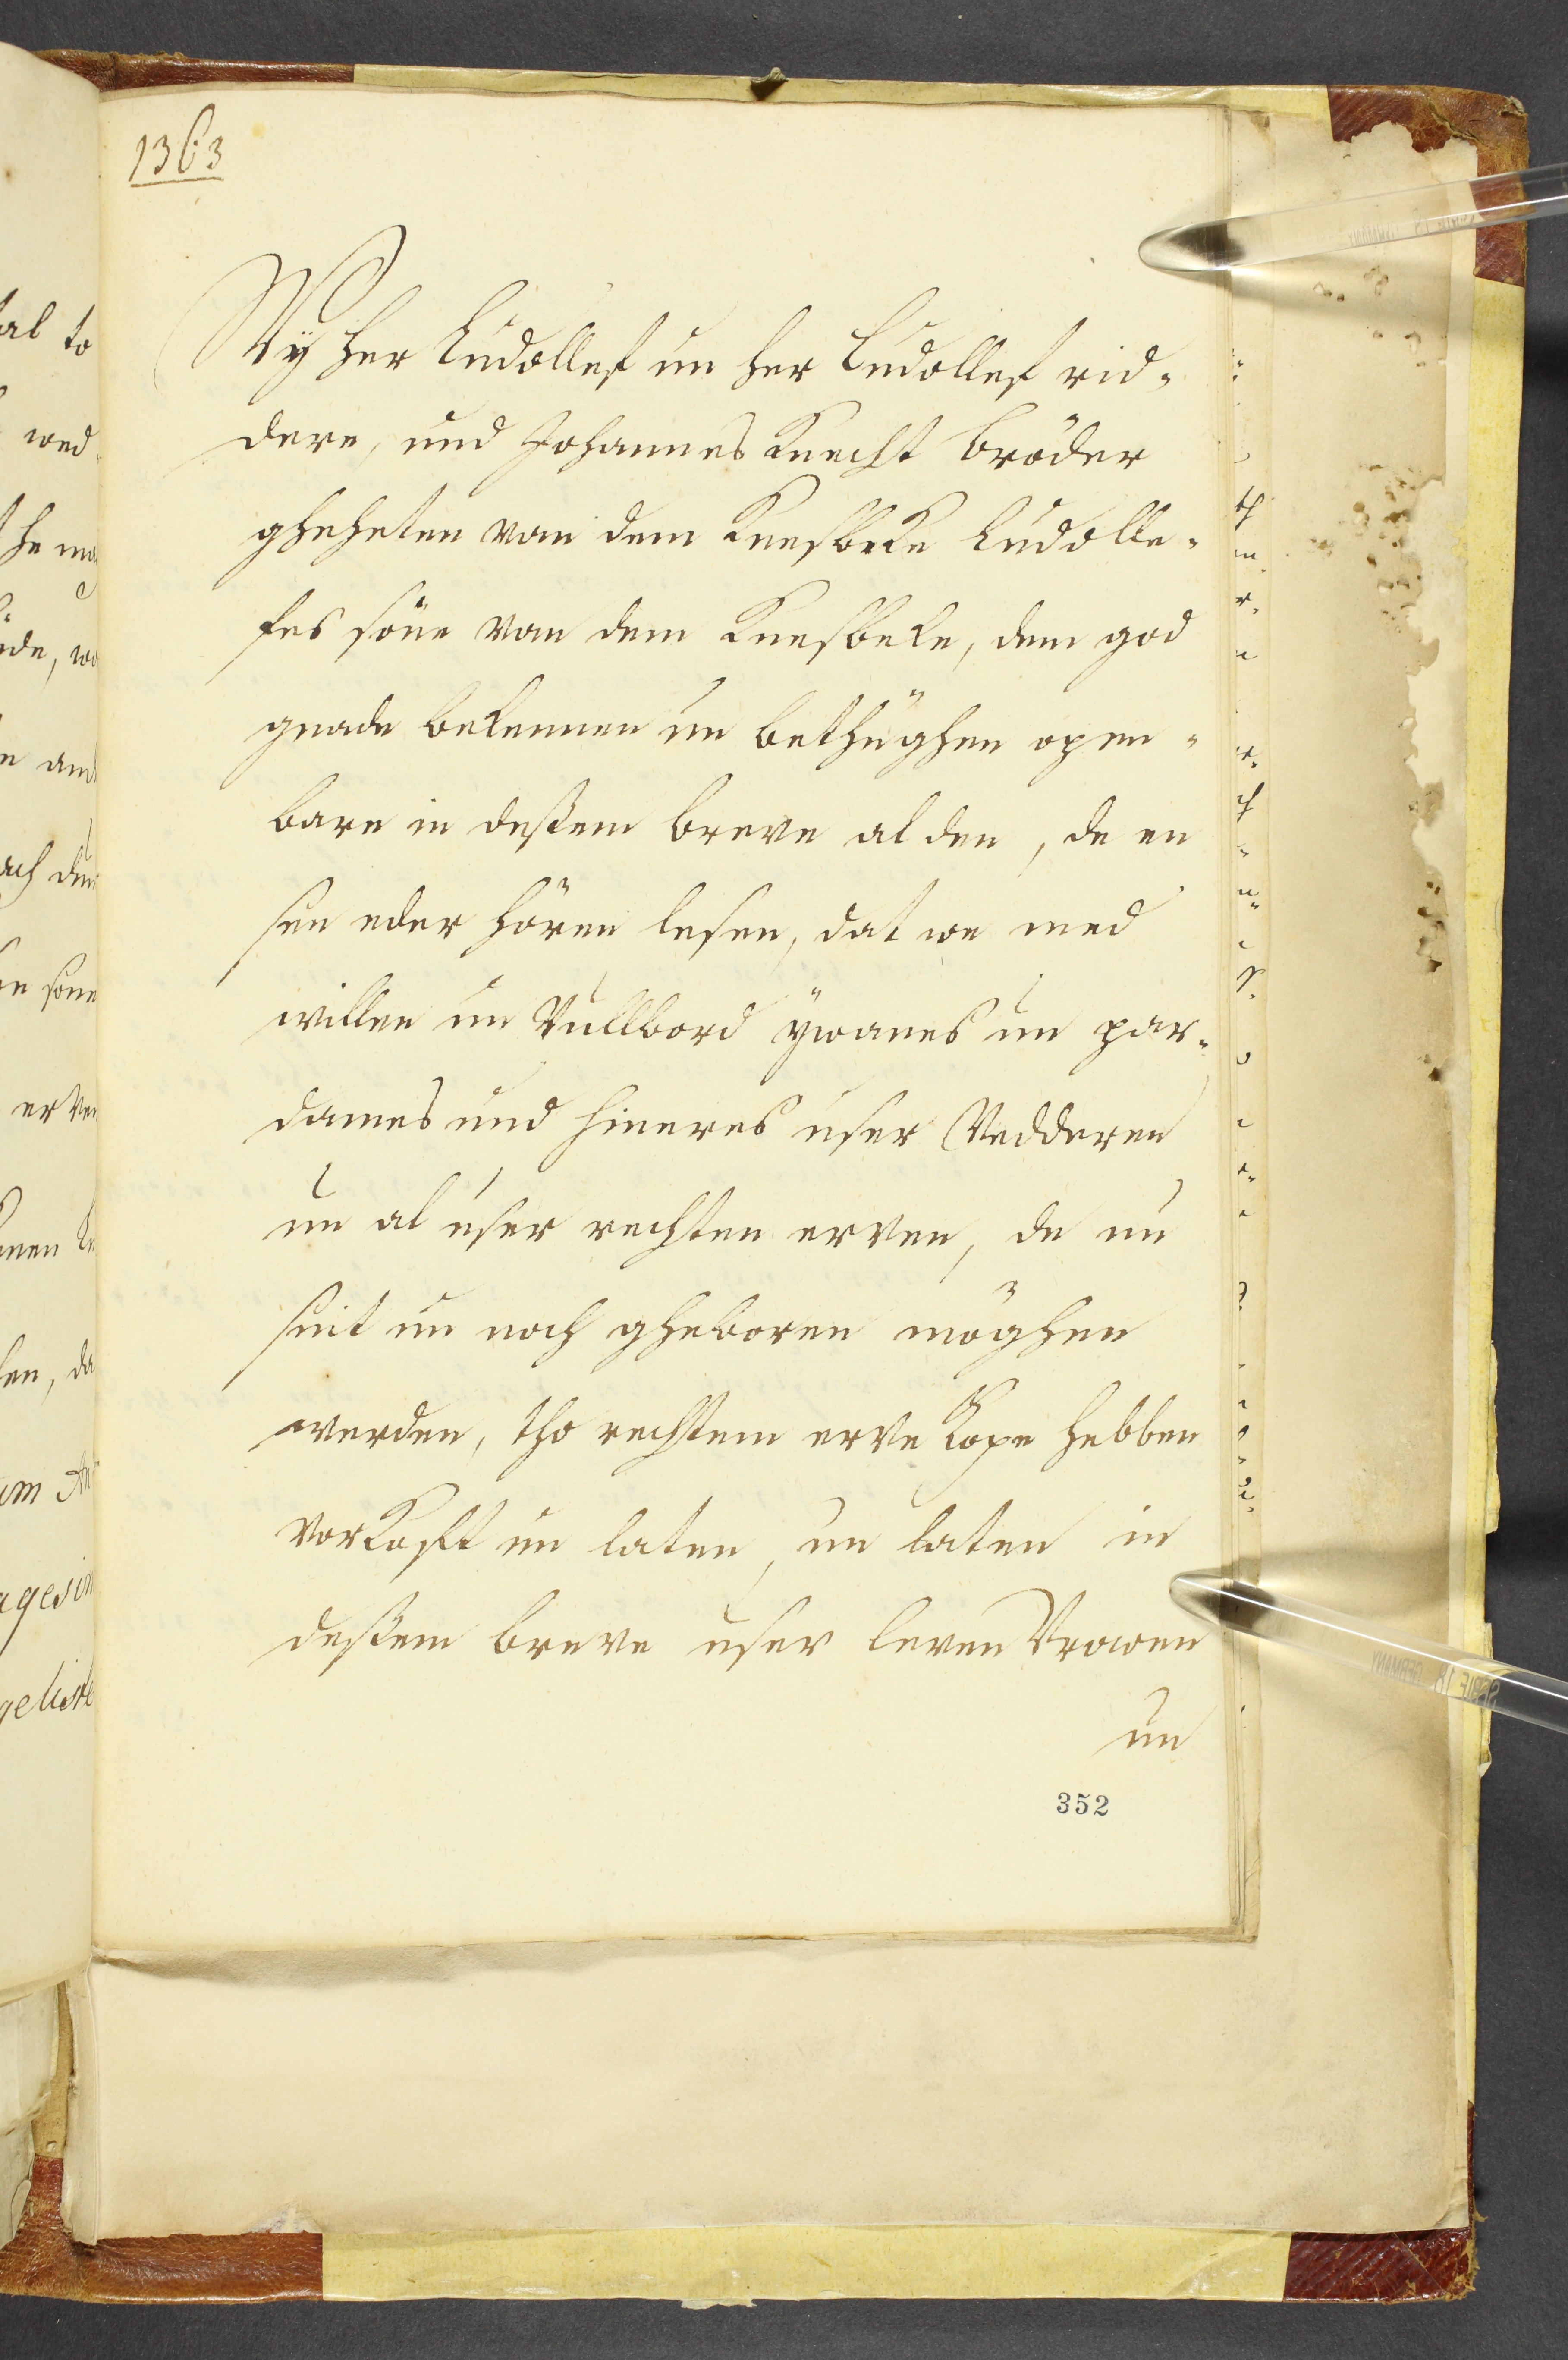 1363
Wÿ her Ludollef un her Ludollef rid-
dere, und Johannes Knecht bröder
gheheten van dem Knesbeke Ludolle-
fes söne van dem Knesbeke, dem god
gnade bekennen un bethüghen open-
bare in deßem breve al den, de en
sen eder hören lesen, dat we med
willen un Vullbord ÿwanes un par-
dames und hineres user Vedderen
un al user rechten erven, de nu
sint un noch gheboren möghen
werden, tho rechtem erve Kope hebben
vorkoft un laten, un laten in
deßem breve user leven Vrowen
un
352